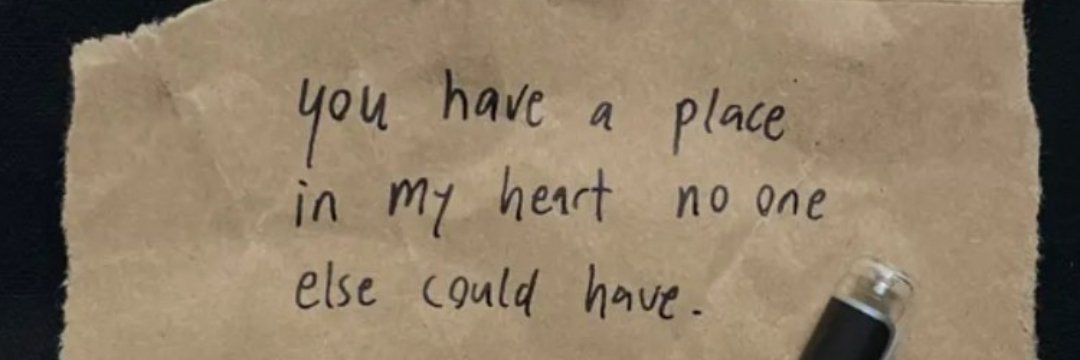 you have a place
in my heart no one
else could have.